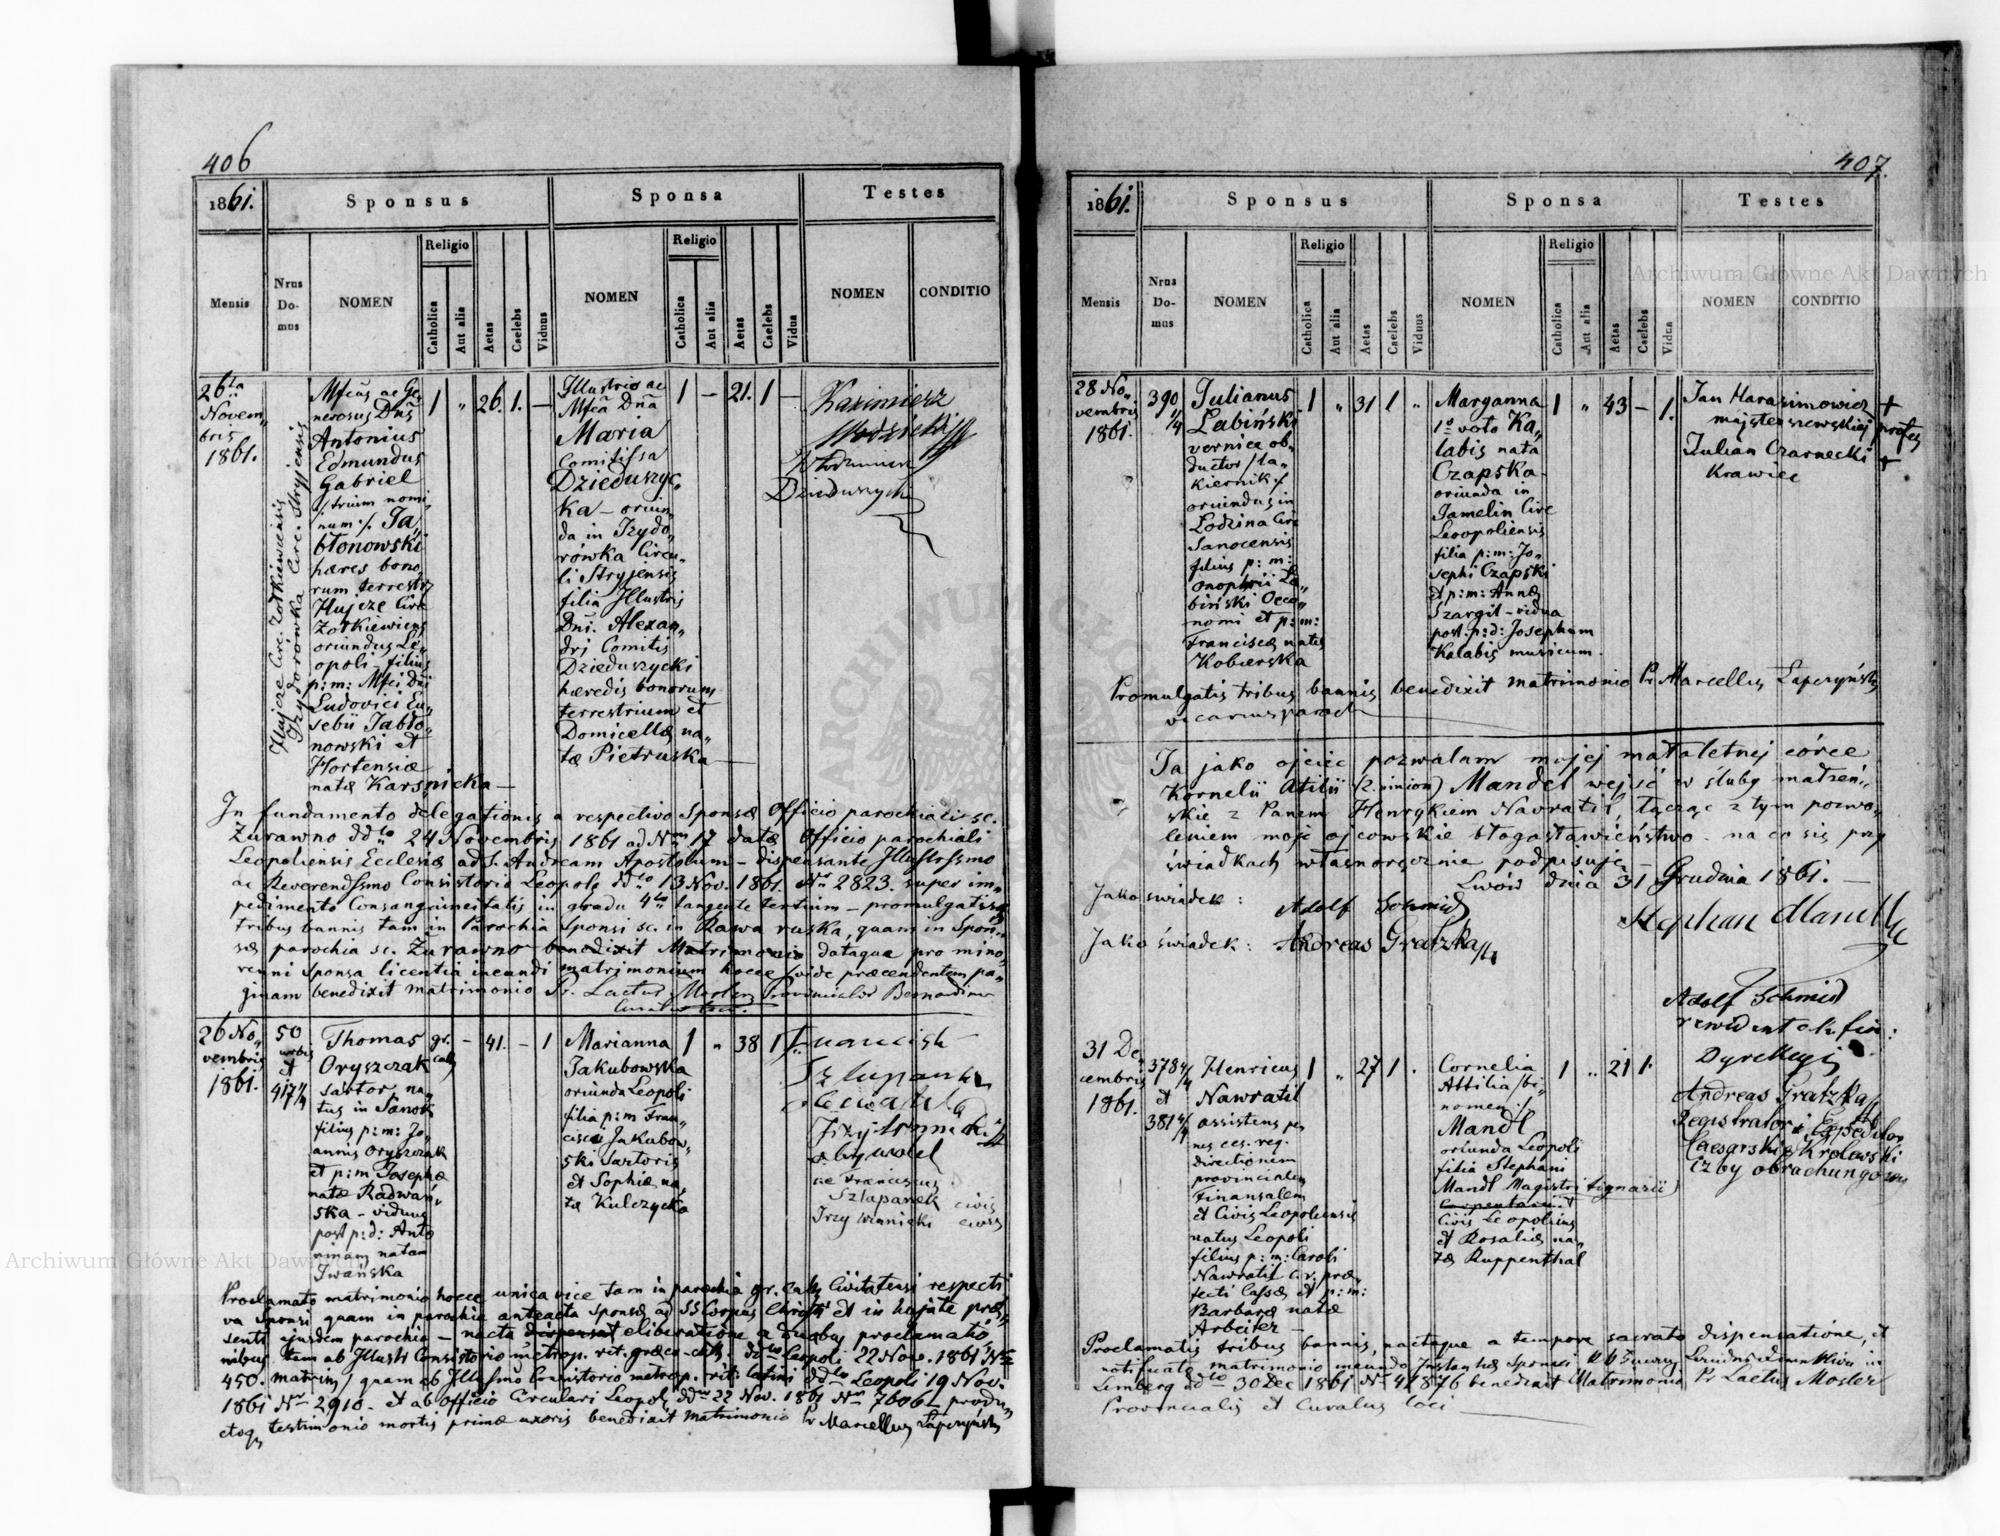 406
1861.
Sponsus
Sponsa
Testes
Mensis
Nrus Domus
NOMEN
Religio
Catholica
Aut alia
Aetas
Caelebs
Viduus
NOMEN
Religio
Catholica
Aut alia
Aetas
Caelebs
Vidua
NOMEN
CONDITIO
26ta
Novem„
bris
1861.
Hujcze Circ. Żołkiewiensis
Izydorówka Circ. Stryjensis
Mfcus ac Ge„
nerosus Dñs
Antonius
Edmundus
Gabriel
/:trium nomi„
num:/ Ja„
błonowski
hæres bono„
rum terrestr.
Hujcze Circ
Żołkiewiens
oriundus Le„
opoli – filius
p: m: Mfci Dñi
Ludovici Eu„
sebii Jabło„
nowski et
Hortensiæ
natæ Karśnicka —
1 „ 26. 1. —
Illustris ac
Mfca Dña
Maria
Comitissa
Dzieduszyc„
ka – oriun„
da in Izydo„
rówka Circu„
li Stryjensis
filia Illustris
Dni. Alexan„
dri Comitis
Dzieduszycki
hæredis bonorum
terrestrium et
Domicellæ na„
tæ Pietruska —
1 — 21. 1 —
Kazimierz
Wodzicki
Włodzimierz
Dzieduszycki
In fundamento delegationis a respectivo Sponsæ Officio parochiali sc.
Żurawno ddto 24 Novembris 1861 ad Num 17 datæ Officio parochiali
Leopoliensis Ecclesiæ ad S. Andream Apostolum – dispensante Illustrssmo
ac Reverendssmo Consistorio Leopol. ddto 13 Nov. 1861. Nr 2823. super im„
pedimento Consangvineitatis in gradu 4to tangente tertium – promulgatisq
tribus bannis tam in Parochia Sponsi sc. in Rawa ruska, quam in Spon„
sæ parochia sc. Żurawno benedixit Matrimonio dataqua pro mino„
renni Sponsa licentia ineundi matrimonium hocce (vide præcendentem pa„
ginam benedixit matrimonio Pr. Laetus Mosler Provincialis Bernardinor
Curatus loci.
26 No„
vembris
1861.
50
urbis
et
417 4/4
Thomas
Oryszczak
sartor na„
tus in Sanok
filius p: m: Jo„
annis Oryszczak
et p: m Josephæ
natæ Radwań„
ska – viduus
post p: d: Anto
ninam natam
Iwańska
gr.
cath
– 41. – 1
Marianna
Jakubowska
oriunda Leopoli
filia p: m Fran„
cisci Jakubow„
ski Sartoris
et Sophiæ na„
tæ Kulczycka
1 „ 38 1
Franciszek
Szlapanek
Jrzy Winnicki
obywatel
ac Franciscus
Szlapanek civis
Jrzy Winnicki civis
Proclamato matrimonio hocce unica vice tam in parochia gr. cath Civitatensi respecti
va Sponsi quam in parochia anteacta Sponsæ ad SS Corpus Christi et in hajate præ„
senti ejusdem parochia – nacta dispensat eliberatione a duobus proclamatio„
nibus tam ab Illustr Consistorio metrop. rit. græco-cath. ddto Leopoli 22 Nov. 1861 Nr
450. matrim/ quam ab Illussmo Consistorio metrop. rit: latini ddto Leopoli 19 Nov.
1861 Nr 2910. et ab Officio Circulari Leopol. ddto 22 Nov. 1861 Nr 76062 produ„
ctoq testimonio mortis primæ uxoris benedixit matrimonio Pr Marcellus Łapczyński
407.
1861.
Sponsus
Sponsa
Testes
Mensis
Nrus Domus
NOMEN
Religio
Catholica
Aut alia
Aetas
Caelebs
Viduus
NOMEN
Religio
Catholica
Aut alia
Aetas
Caelebs
Vidua
NOMEN
CONDITIO
28 No„
vembris
1861.
390
1/4
Julianus
Łabiński
vernicæ ob„
ductor /:la„
kiernik:/
oriundus in
Łodzina Circ
Sanocensis
filius p: m:
Onophrii Ła„
biński Oeco„
nomi et p: m:
Franciscæ natæ
Kobierska
1 „ 31 1 „
Maryanna
1o voto Ka„
labis nata
Czapska
oriunda in
Jamelin Circ
Leopoliensis
filia p: m: Jo„
sephi Czapski
et p: m: Annæ
Szargit – vidua
post. p: d: Josephum
Kalabis musicum
1 „ 43 – 1.
Jan Harasimowicz +
majster szewskiej profes
Julian Czarnecki +
Krawiec
Promulgatis tribus bannis benedixit matrimonio Pr Marcellus Łapczyński
vicarius paroch
Ja jako ojciec pozwalam mojej małoletniej córce
Kornelii Atilii (2. imion) Mandel wejść w śluby małżeń„
skie z Panem Henrykiem Navratil, łącząc z tym pozwo„
leniem moje ojcowskie błogosławieństwo – na co się przy
świadkach własnoręcznie podpisuję –
Lwów dnia 31 Grudnia 1861. —
Jako świadek: Adolf Schmid
Stephan Mandl
Jako świadek: Andreas Gratzka
31 De„
cembris
1861.
378 4/4
et
381 4/4
Henricus
Nawratil
assistens pe„
nes ces. reg.
directionem
provincialem
Finansalem
et Civis Leopoliensis
natus Leopoli
filius p: m: Caroli
Nawratil c. r. præ„
fecti Cassæ et p: m:
Barbaræ natæ
Arbeiter –
1 „ 27 1 .
Cornelia
Attilia /:bi„
nomen:/
Mandl
oriunda Leopoli
filia Stephani
Mandl Magistri lignarii
Carpentarii
Civis Leopoliens
et Rosaliæ na„
tæ Ruppenthal
1 „ 21 1.
Adolf Schmid
rewident ck. fin:
Dyrekcyi
Andreas Gratzka
Registrator i Expeditor
Caesarsko Krolewski
Izby obrachungowej
Proclamatis tribus bannis, nactaque a tempore sacrato dispensatione, et
notificato matrimonio ineundo Instantiæ Sponsi
Lemberg ddto 30 Dec 1861 Nr 41876 benedixit Matrimonio Pr Laetus Mosler
Provincialis et Curatus loci
Archiwum Główne Akt Dawnych
Archiwum Główne Akt Dawnych